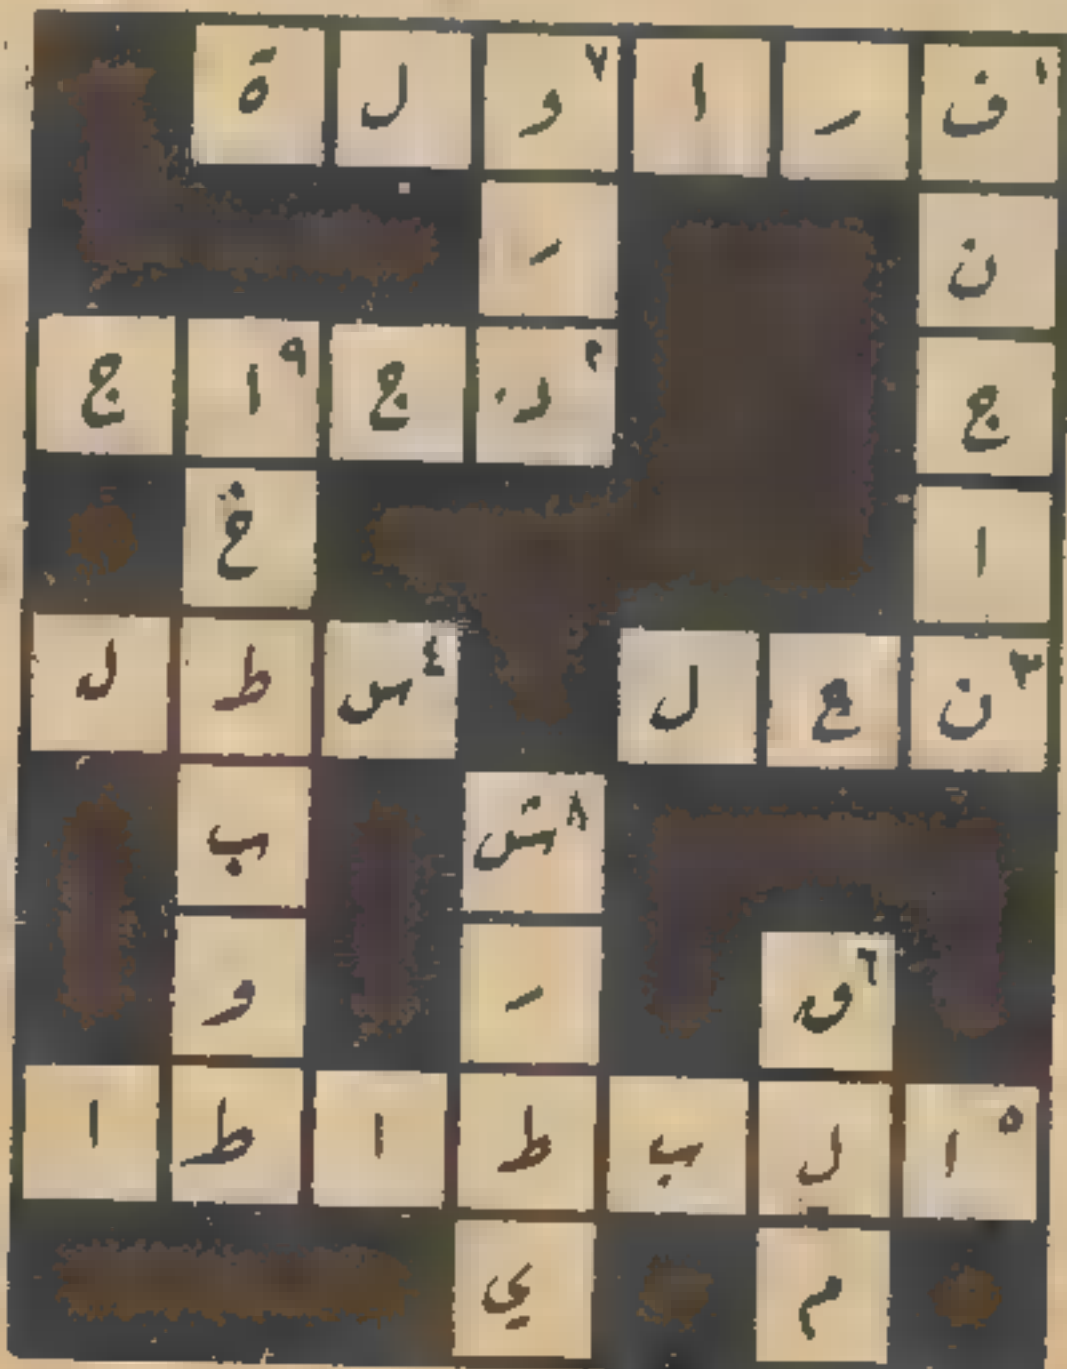 ١ ف ر ا ٧ و ل ة
ن ر
ج ٢ د ج ٩ ا ج
ا خ
٣ ن ع ل ٤ س ط ل
٨ ش ب
٦ ق ر و
٥ ا ل ب ط ا ط ا
م ي